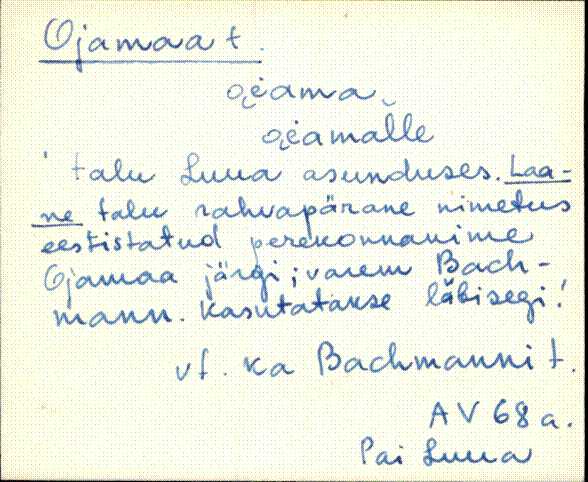 Ojamaa t.
oi̯ama,
oi̯amalle
talu Luua asunduses. Laa-
ne talu rahvapärane nimetus
eestistatud perekonnanime
Ojamaa järgi; varem Bach-
mann. Kasutatakse läbisegi!
vt. ka Bachmanni t.
AV 68 a.
Pai Luua